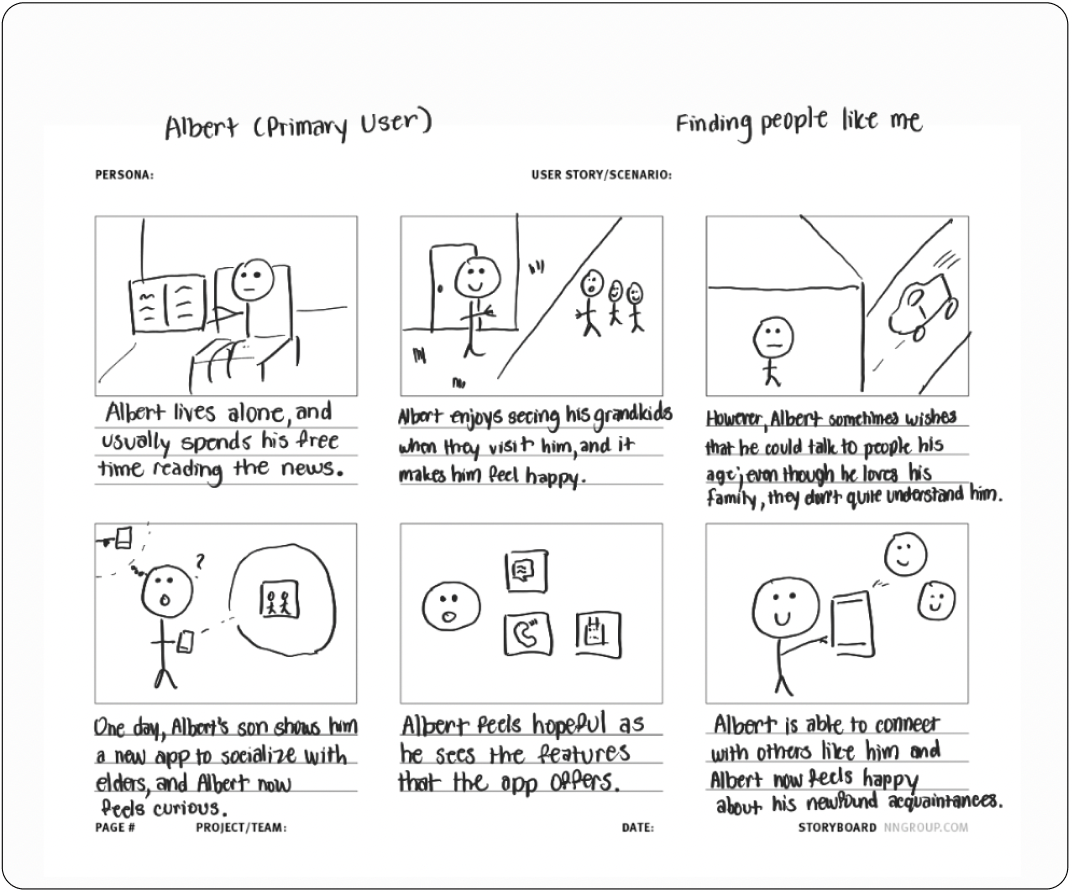 Albert (Primary User)
Finding people like me
PERSONA:
USER STORY/SCENARIO:
Albert lives alone, and
usually spends his free
time reading the news.
Albert enjoys seeing his grandkids
when they visit him, and it
makes him feel happy.
However, Albert sometimes wishes
that he could talk to people his
age; even though he loves his
family, they don't quite understand him.
?
One day, Albert's son shows him
a new app to socialize with
elders, and Albert now
feels curious.
Albert feels hopeful as
he sees the features
that the app offers.
Albert is able to connect
with others like him and
Albert now feels happy
about his newfound acquaintances.
PAGE #
PROJECT/TEAM:
DATE:
STORYBOARD NNGROUP.COM